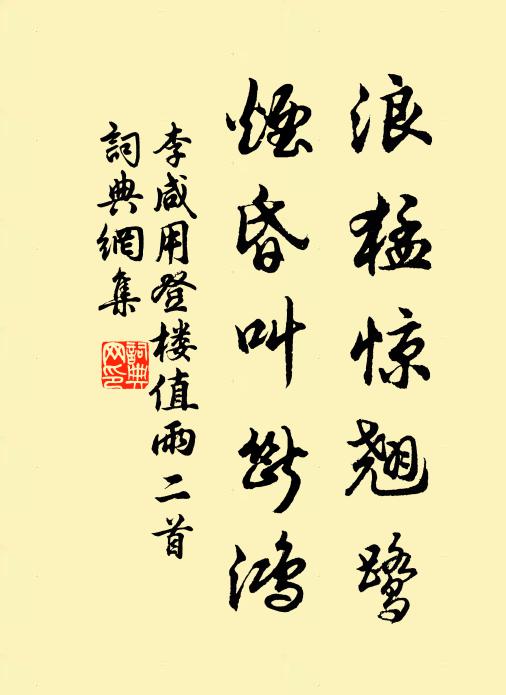 浪猛惊翘鹭
煙昏叫断鸿
李咸用登楼值雨二首
詞典網集
詞典网印